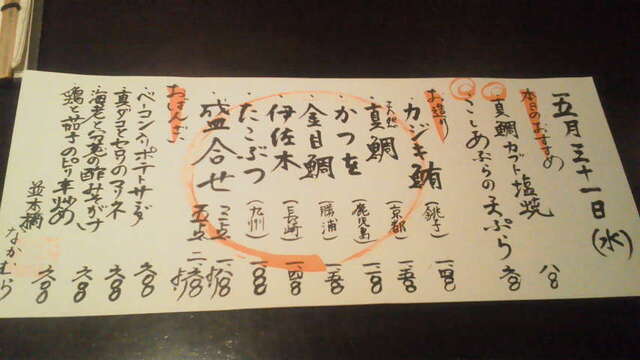 五月三十一日(水)
本日のおすすめ
真鯛カブト塩焼 八〇〇
こしあぶらの天ぷら 六〇〇
お造り
カジキ鮪(銚子) 一四〇〇
天然真鯛(京都) 一五〇〇
かつを(鹿児島) 一二〇〇
金目鯛(勝浦) 一五〇〇
伊佐木(長崎) 一四〇〇
たこぶつ(九州) 一二〇〇
盛合せ 三点 一八〇〇より
五点 二八〇〇より
おばんざい
ベーコン入りポテトサラダ 六〇〇
真ダコとセロリのマリネ 六〇〇
海老と分葱の酢みそがけ 六〇〇
鶏と茄子のピリ辛炒め 六〇〇
並木橋 なかむら